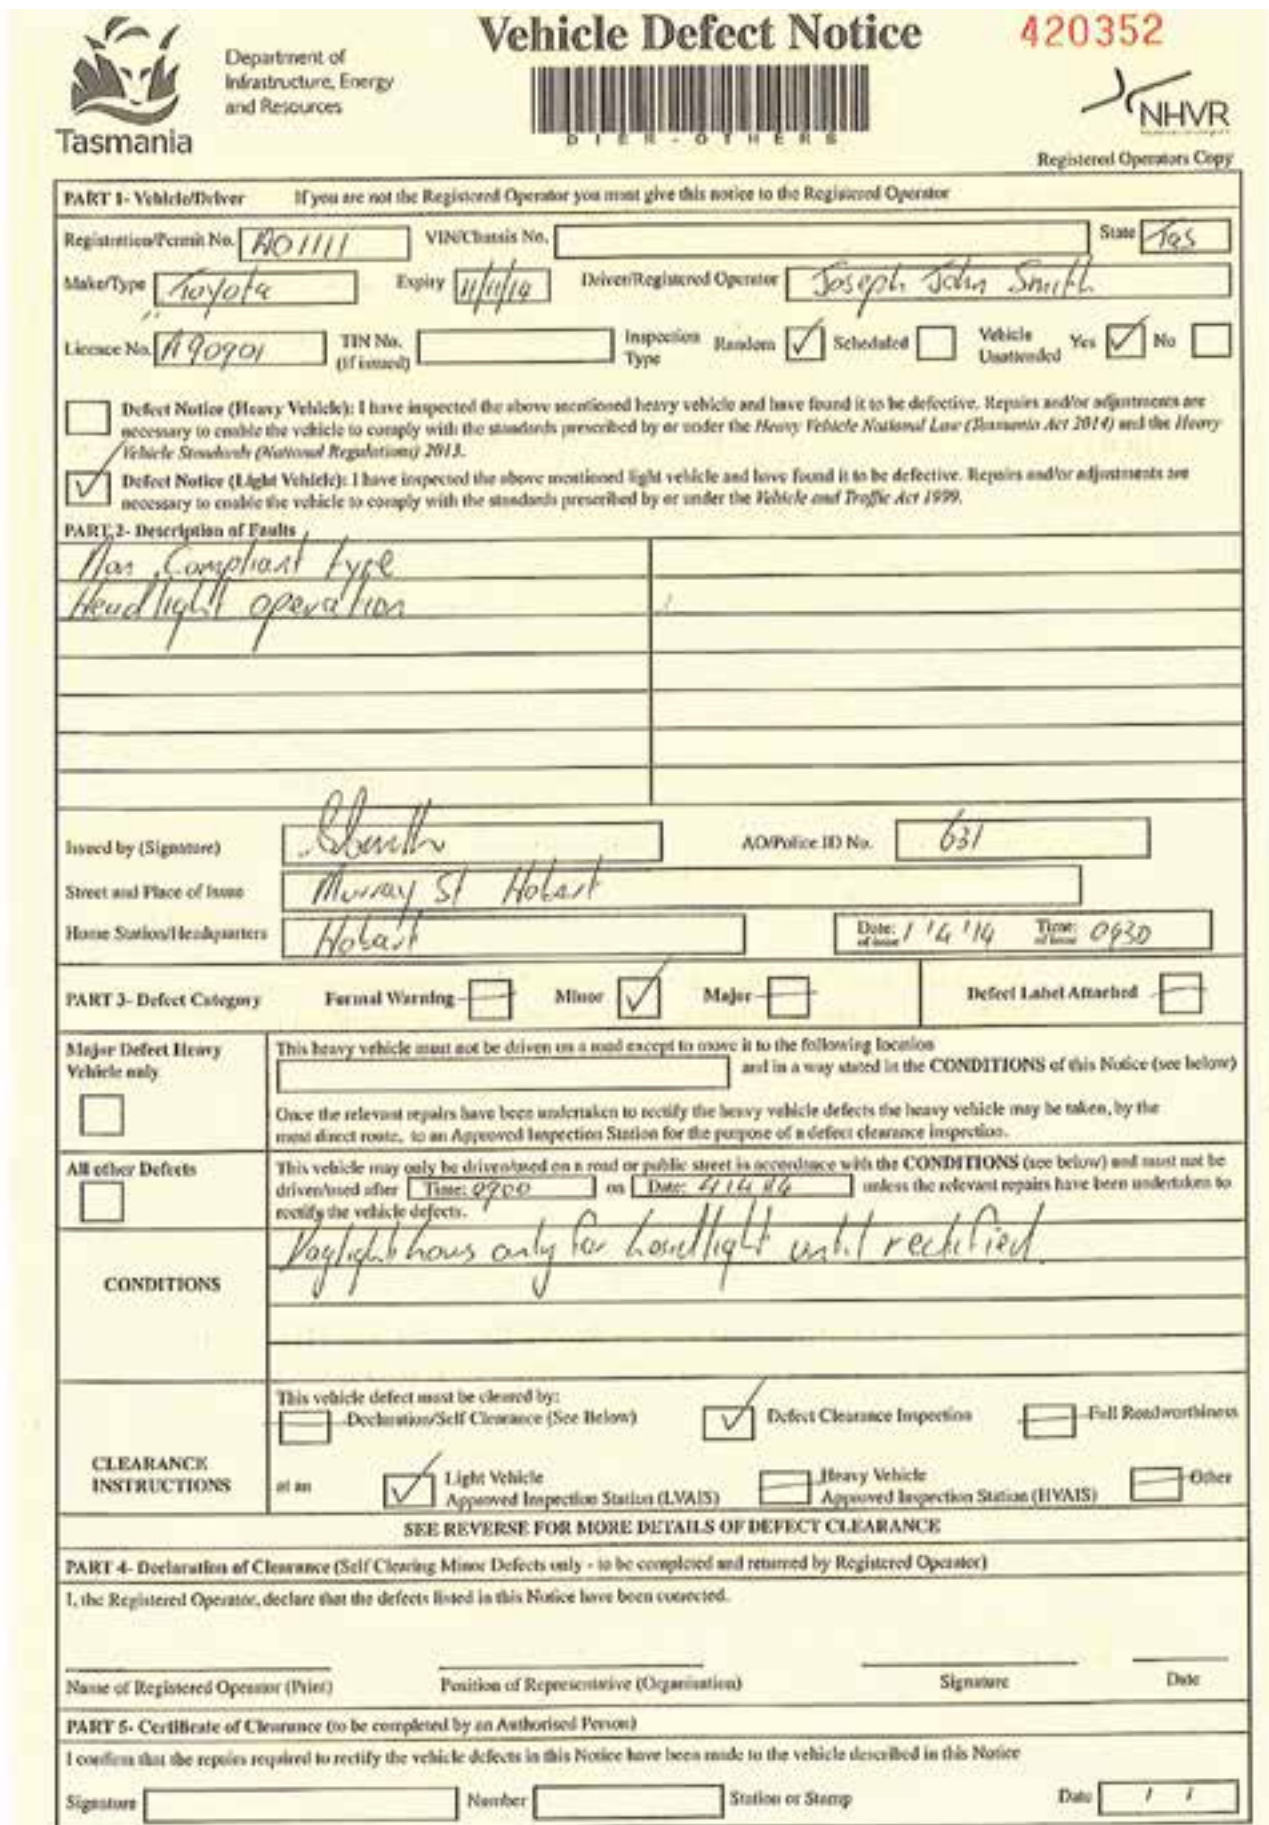 Vehicle Defect Notice
420352
Department of
Infrastructure, Energy
and Resources
Tasmania
DIER-OTHERS
NHVR
Registered Operators Copy
PART 1- Vehicle/Driver If you are not the Registered Operator you must give this notice to the Registered Operator
Registration/Permit No. AO1111 VIN/Chassis No. State Tas
Make/Type Toyota Expiry 11/11/14 Driver/Registered Operator Joseph John Smith
Licence No. A90901 TIN No. (If issued) Inspection Type Random Scheduled Vehicle Unattended Yes No
Defect Notice (Heavy Vehicle): I have inspected the above mentioned heavy vehicle and have found it to be defective. Repairs and/or adjustments are
necessary to enable the vehicle to comply with the standards prescribed by or under the Heavy Vehicle National Law (Tasmania Act 2014) and the Heavy
Vehicle Standards (National Regulations) 2013.
Defect Notice (Light Vehicle): I have inspected the above mentioned light vehicle and have found it to be defective. Repairs and/or adjustments are
necessary to enable the vehicle to comply with the standards prescribed by or under the Vehicle and Traffic Act 1999.
PART 2- Description of Faults
Non Compliant type
Headlight operation
Issued by (Signature) AO/Police ID No. 631
Street and Place of Issue Murray St Hobart
Home Station/Headquarters Hobart Date: of issue 1/4/14 Time: of issue 0930
PART 3- Defect Category Formal Warning Minor Major Defect Label Attached
Major Defect Heavy
Vehicle only
This heavy vehicle must not be driven on a road except to move it to the following location
and in a way stated in the CONDITIONS of this Notice (see below)
Once the relevant repairs have been undertaken to rectify the heavy vehicle defects the heavy vehicle may be taken, by the
most direct route, to an Approved Inspection Station for the purpose of a defect clearance inspection.
All other Defects
This vehicle may only be driven/used on a road or public street in accordance with the CONDITIONS (see below) and must not be
driven/used after Time: 0900 on Date: 4/4/14 unless the relevant repairs have been undertaken to
rectify the vehicle defects.
CONDITIONS
Daylight hours only for headlight until rectified.
CLEARANCE
INSTRUCTIONS
This vehicle defect must be cleared by:
Declaration/Self Clearance (See Below) Defect Clearance Inspection Full Roadworthiness
at an Light Vehicle Approved Inspection Station (LVAIS) Heavy Vehicle Approved Inspection Station (HVAIS) Other
SEE REVERSE FOR MORE DETAILS OF DEFECT CLEARANCE
PART 4- Declaration of Clearance (Self Clearing Minor Defects only - to be completed and returned by Registered Operator)
I, the Registered Operator, declare that the defects listed in this Notice have been corrected.
Name of Registered Operator (Print) Position of Representative (Organisation) Signature Date
PART 5- Certificate of Clearance (to be completed by an Authorised Person)
I confirm that the repairs required to rectify the vehicle defects in this Notice have been made to the vehicle described in this Notice
Signature Number Station or Stamp Date / /